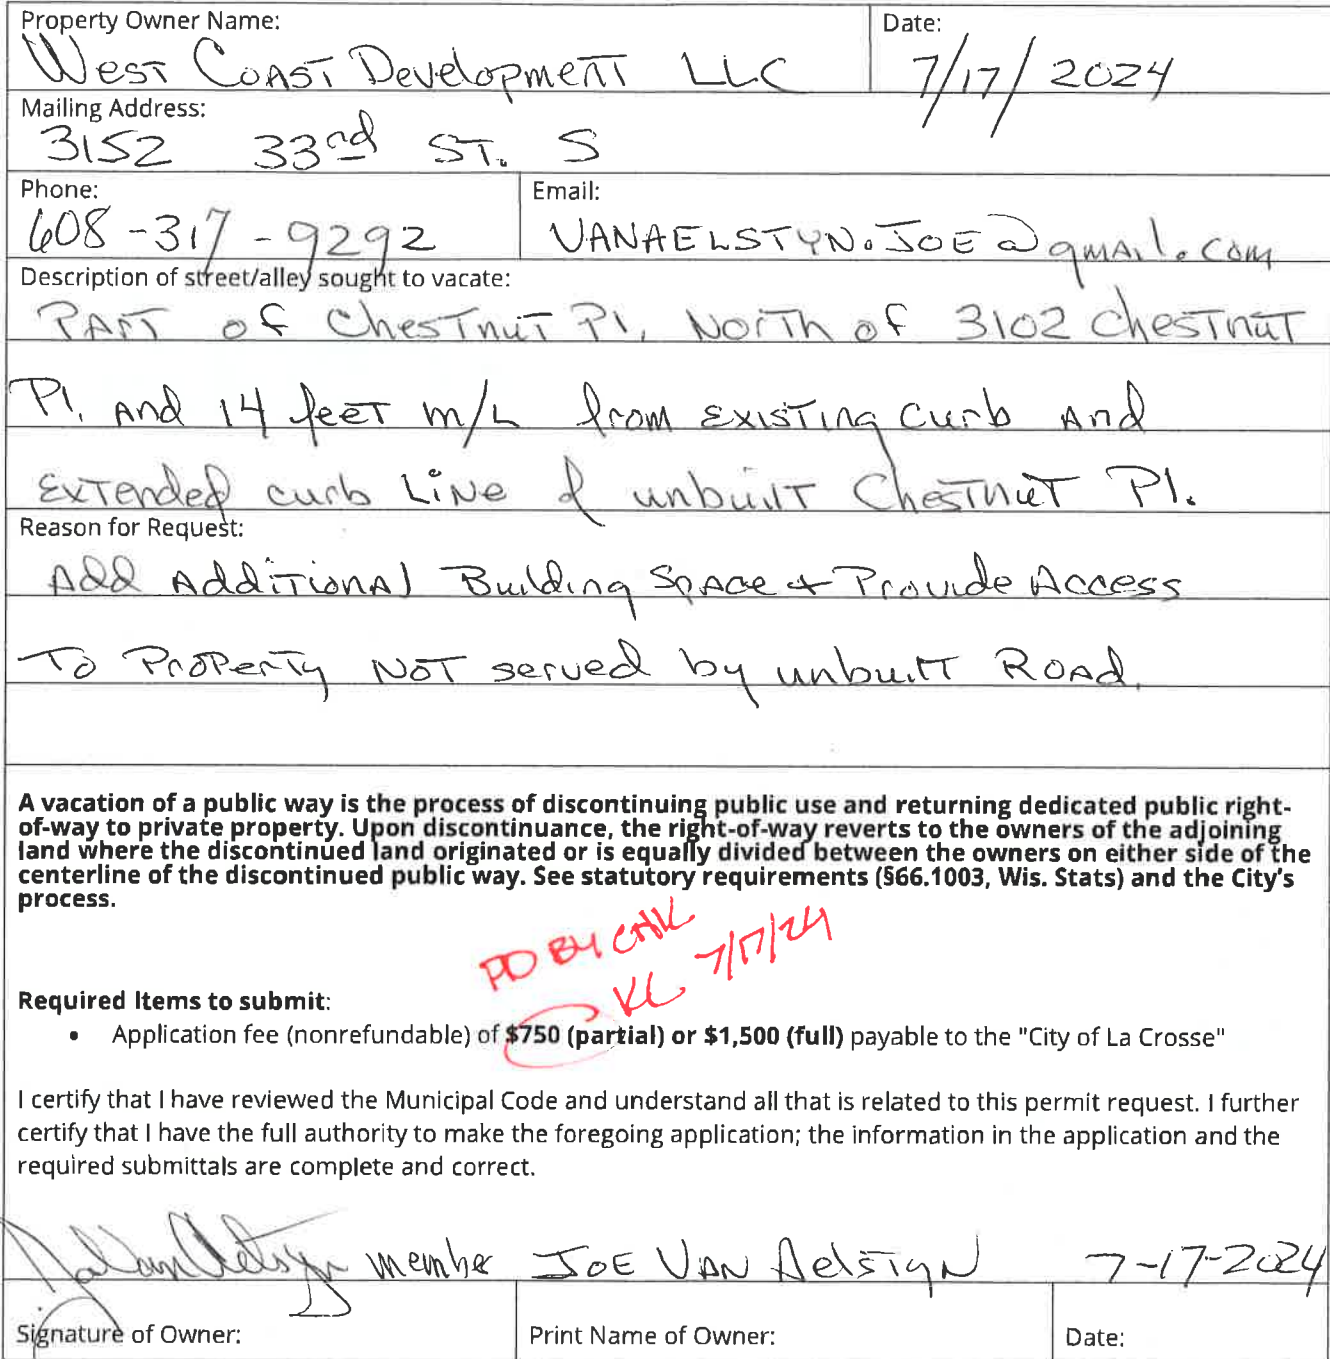 Property Owner Name:
West Coast Development LLC
Date:
7/17/2024
Mailing Address:
3152 33rd ST. S
Phone:
608-317-9292
Email:
VANAELSTYN.JOE@gmail.com
Description of street/alley sought to vacate:
Part of Chestnut Pl. North of 3102 Chestnut
Pl. and 14 feet m/L from existing curb and
Extended curb Line of unbuilt Chestnut Pl.
Reason for Request:
Add Additional Building Space + Provide Access
To Property Not served by unbuilt Road.
A vacation of a public way is the process of discontinuing public use and returning dedicated public right-
of-way to private property. Upon discontinuance, the right-of-way reverts to the owners of the adjoining
land where the discontinued land originated or is equally divided between the owners on either side of the
centerline of the discontinued public way. See statutory requirements (§66.1003, Wis. Stats) and the City's
process.
PD BY CHK
KL 7/17/24
Required Items to submit:
• Application fee (nonrefundable) of $750 (partial) or $1,500 (full) payable to the "City of La Crosse"
I certify that I have reviewed the Municipal Code and understand all that is related to this permit request. I further
certify that I have the full authority to make the foregoing application; the information in the application and the
required submittals are complete and correct.
member Joe Van Aelstyn 7-17-2024
Signature of Owner:
Print Name of Owner:
Date: